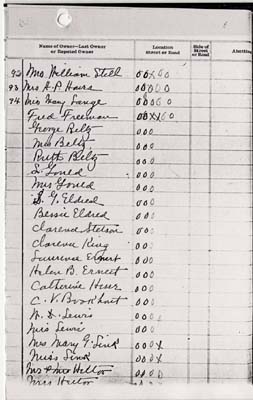 Name of Owner—Last Owner or Reputed Owner Location Street or Road Side of Street or Road Abutting
92 Mrs William Still 00X00
93 Mrs A.P. Hours 00000
94 Miss Mary Lange 00000
Fred Freeman 00XX00
George Beltz 000
Mrs Beltz 000
Ruth Beltz 000
L. Gould 000
Mrs Gould 000
S. G. Eldred 000
Bessie Eldred 000
Clarence Stetson 000
Clarence King 000
Laurence Ernest 000
Helen B. Ernest 000
Catherine Hess 000
C. V. Bookhout 000
W. D. Lewis 000
Miss Lewis 000
Mrs Mary G. Sink 000X
Miss Sink 000X
Mrs & Mr Hilton 000X
Miss Hilton 000X